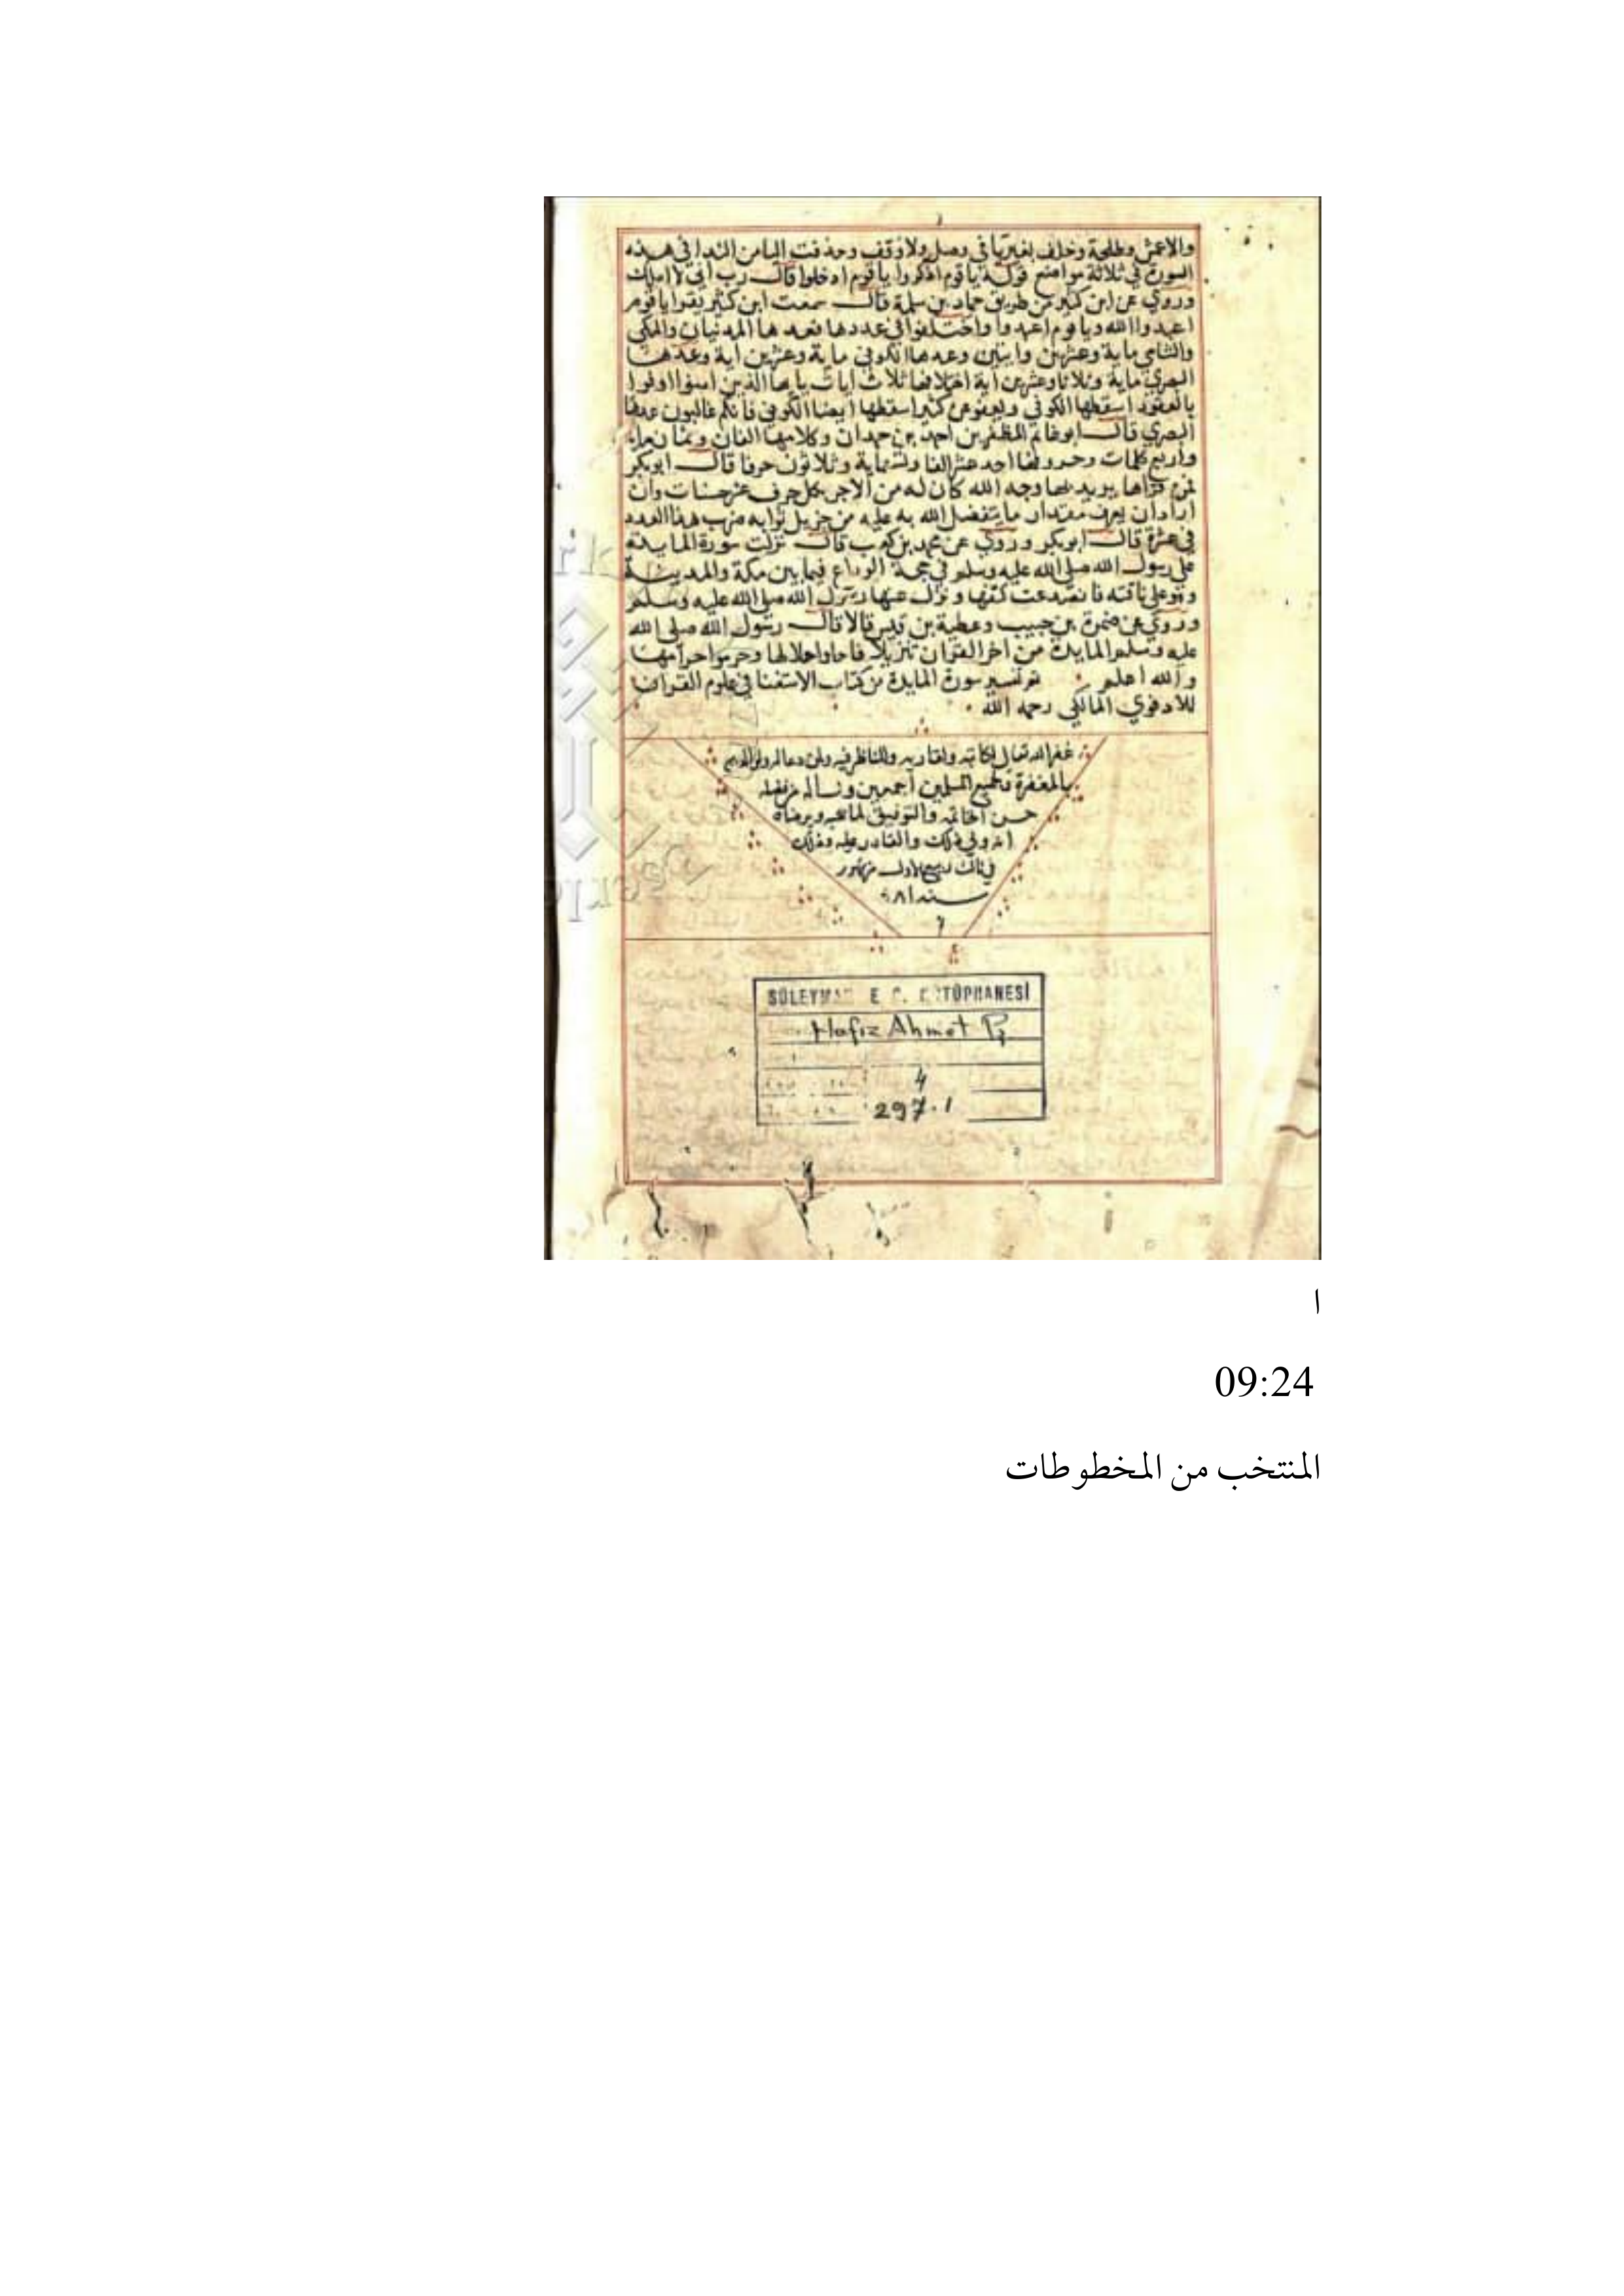 والاعمش وطلحة وخلف بغير يا في وصل ولا وقف وحذفت اليا من الندا في هذه
السورة في ثلاثة مواضع قوله ياقوم اذكروا ياقوم ادخلوا قال رب اني لا املك
وروي عن ابن كثير من طريق حماد بن سلمة قال سمعت ابن كثير يقرا ياقوم
اعبدوا الله وياقوم اعبدوا واختلفوا في عددها فعدها المدنيان والمكي
والشامي ماية وعشرين واثنين وعدها الكوفي ماية وعشرين اية وعدها
البصري ماية وثلاثا وعشرين اية اختلافها ثلاث ايات يا يها الذين امنوا اوفوا
بالعقود اسقطها الكوفي ويعفو عن كثير اسقطها ايضا الكوفي فانكم غالبون عدها
البصري قال ابو غانم المظفر بن احمد بن حمدان وكلامها الفان وثمان ماية
واربع كلمات وحروفها احد عشر الفا و ماية وثلاثون حرفا قال ابو بكر
فمن قراها يريد بها وجه الله كان له من الاجر بكل حرف عشر حسنات وان
اراد ان يعرف مقدار ما يتفضل الله به عليه من جزيل ثوابه ضرب هذا العدد
في عشرة قال ابو بكر وروي عن محمد بن كعب قال نزلت سورة المايدة
على رسول الله صلى الله عليه وسلم في حجة الوداع فيما بين مكة والمدينة
وهو على ناقته فانصدعت كتفها ونزل عنها رسول الله صلى الله عليه وسلم
وروي عن ضمرة بن حبيب وعطية بن قيس قالا قال رسول الله صلى الله
عليه وسلم المايدة من اخر القران تنزيلا فاحلوا حلالها وحرموا حرامها
والله اعلم تم تفسير سورة المايدة من كتاب الاستغنا في علوم القران
للادفوي المالكي رحمه الله
غفر الله تعالى لكاتبه ولقاريه وللناظر فيه ولمن دعا لهم ولوالديهم
بالمغفرة ولجميع المسلمين اجمعين ونساله من فضله
حسن الخاتمه والتوفيق لما يحبه ويرضاه
انه ولي ذلك والقادر عليه وذلك
في ثالث ربيع الاول من شهور
سنه
SÜLEYMANİYE G. KÜTÜPHANESİ
Hafız Ahmet Pş
4
297.1
ا
09:24
المنتخب من المخطوطات